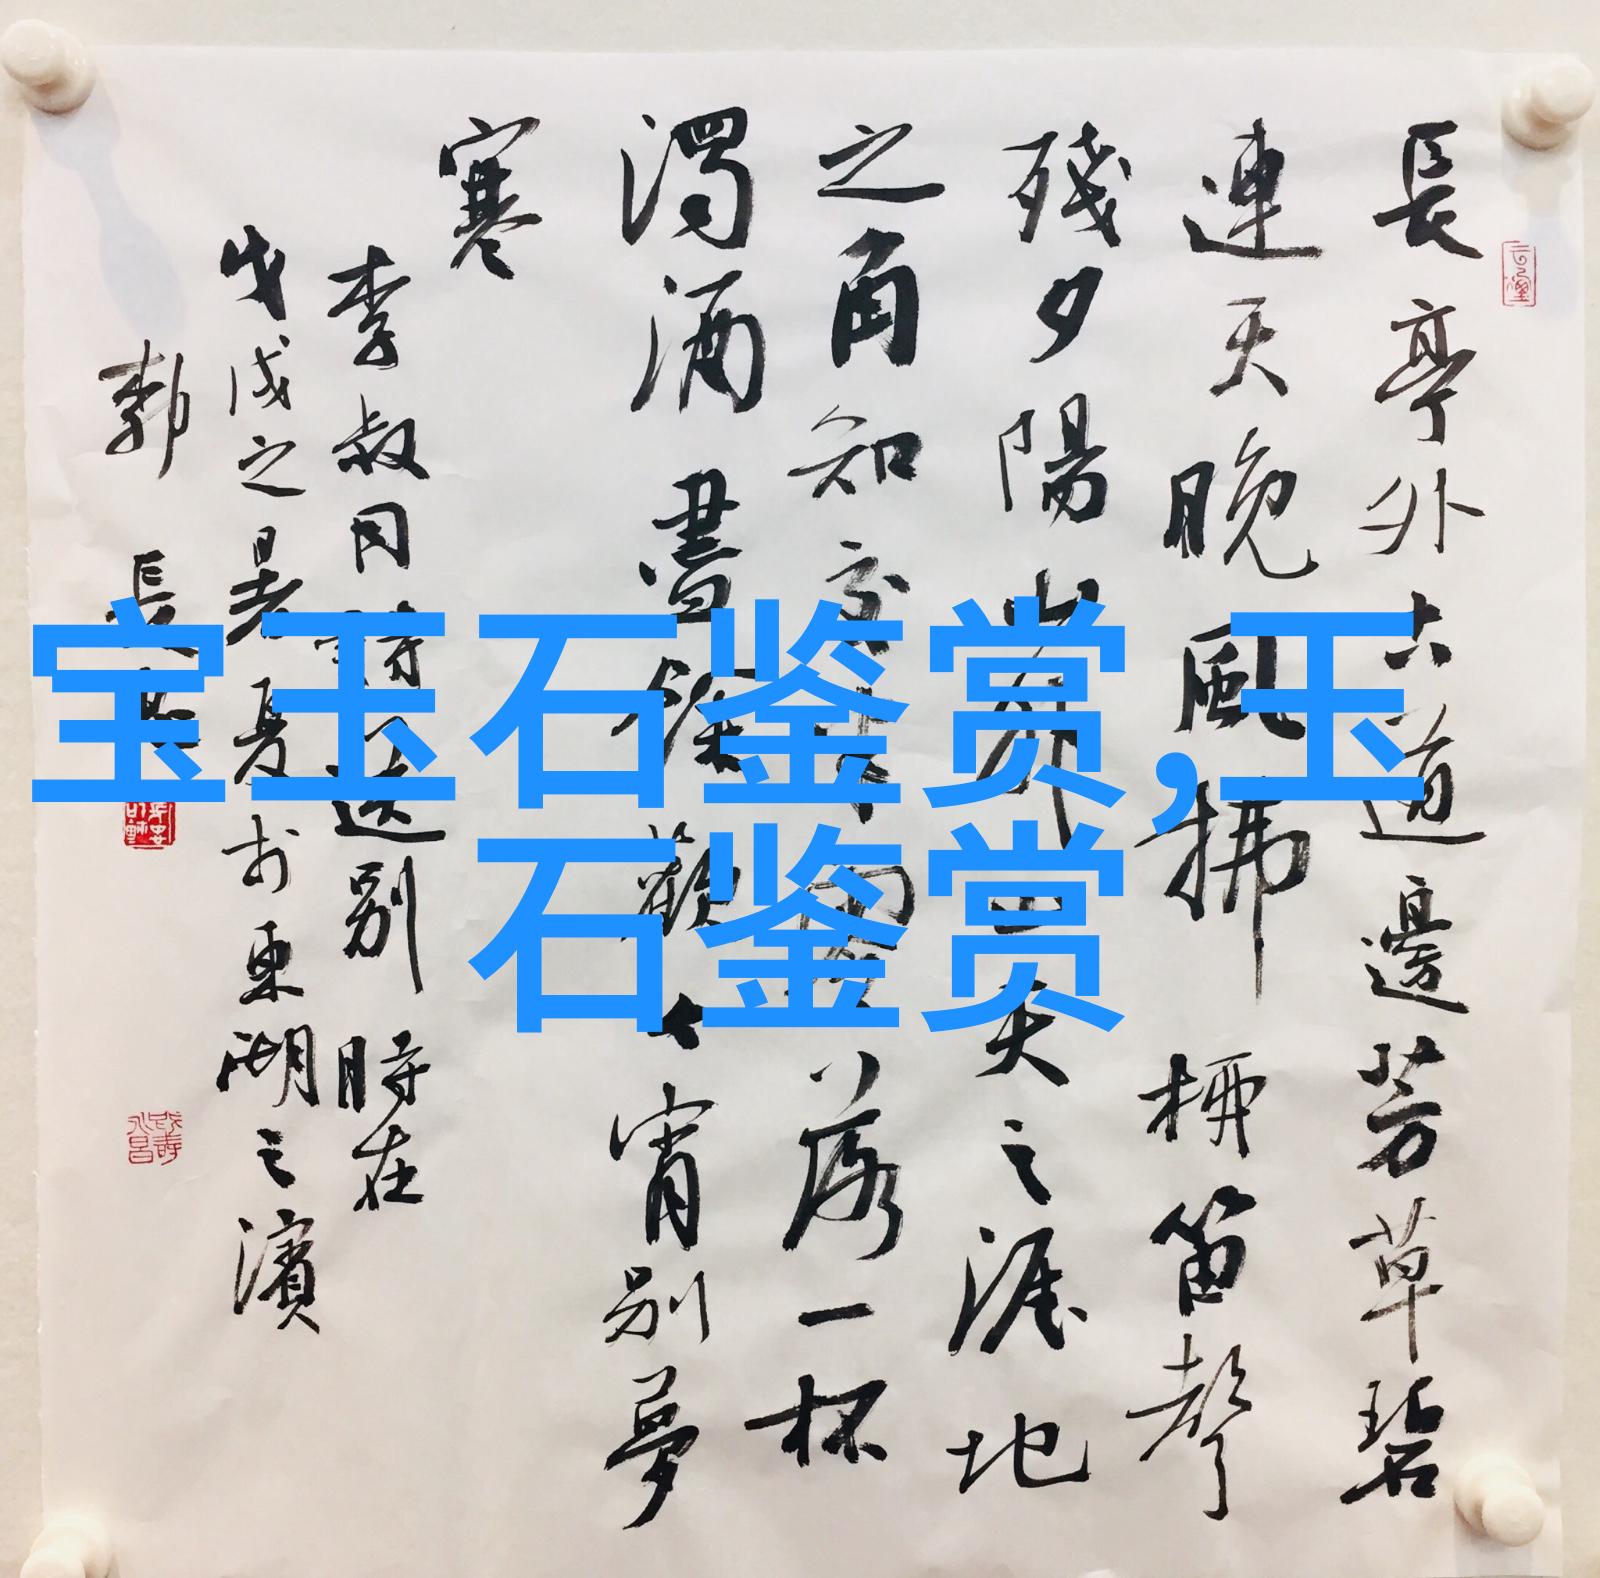 長亭外古道邊芳草碧
連天晚風拂柳笛聲
殘夕陽山外山天之涯地
之角知交半零落一杯
濁酒盡餘歡今宵別夢
寒
李叔同詩送別 時在
戊戌之暑夏於東湖之濱
郭長
宝玉石鉴赏,玉
石鉴赏